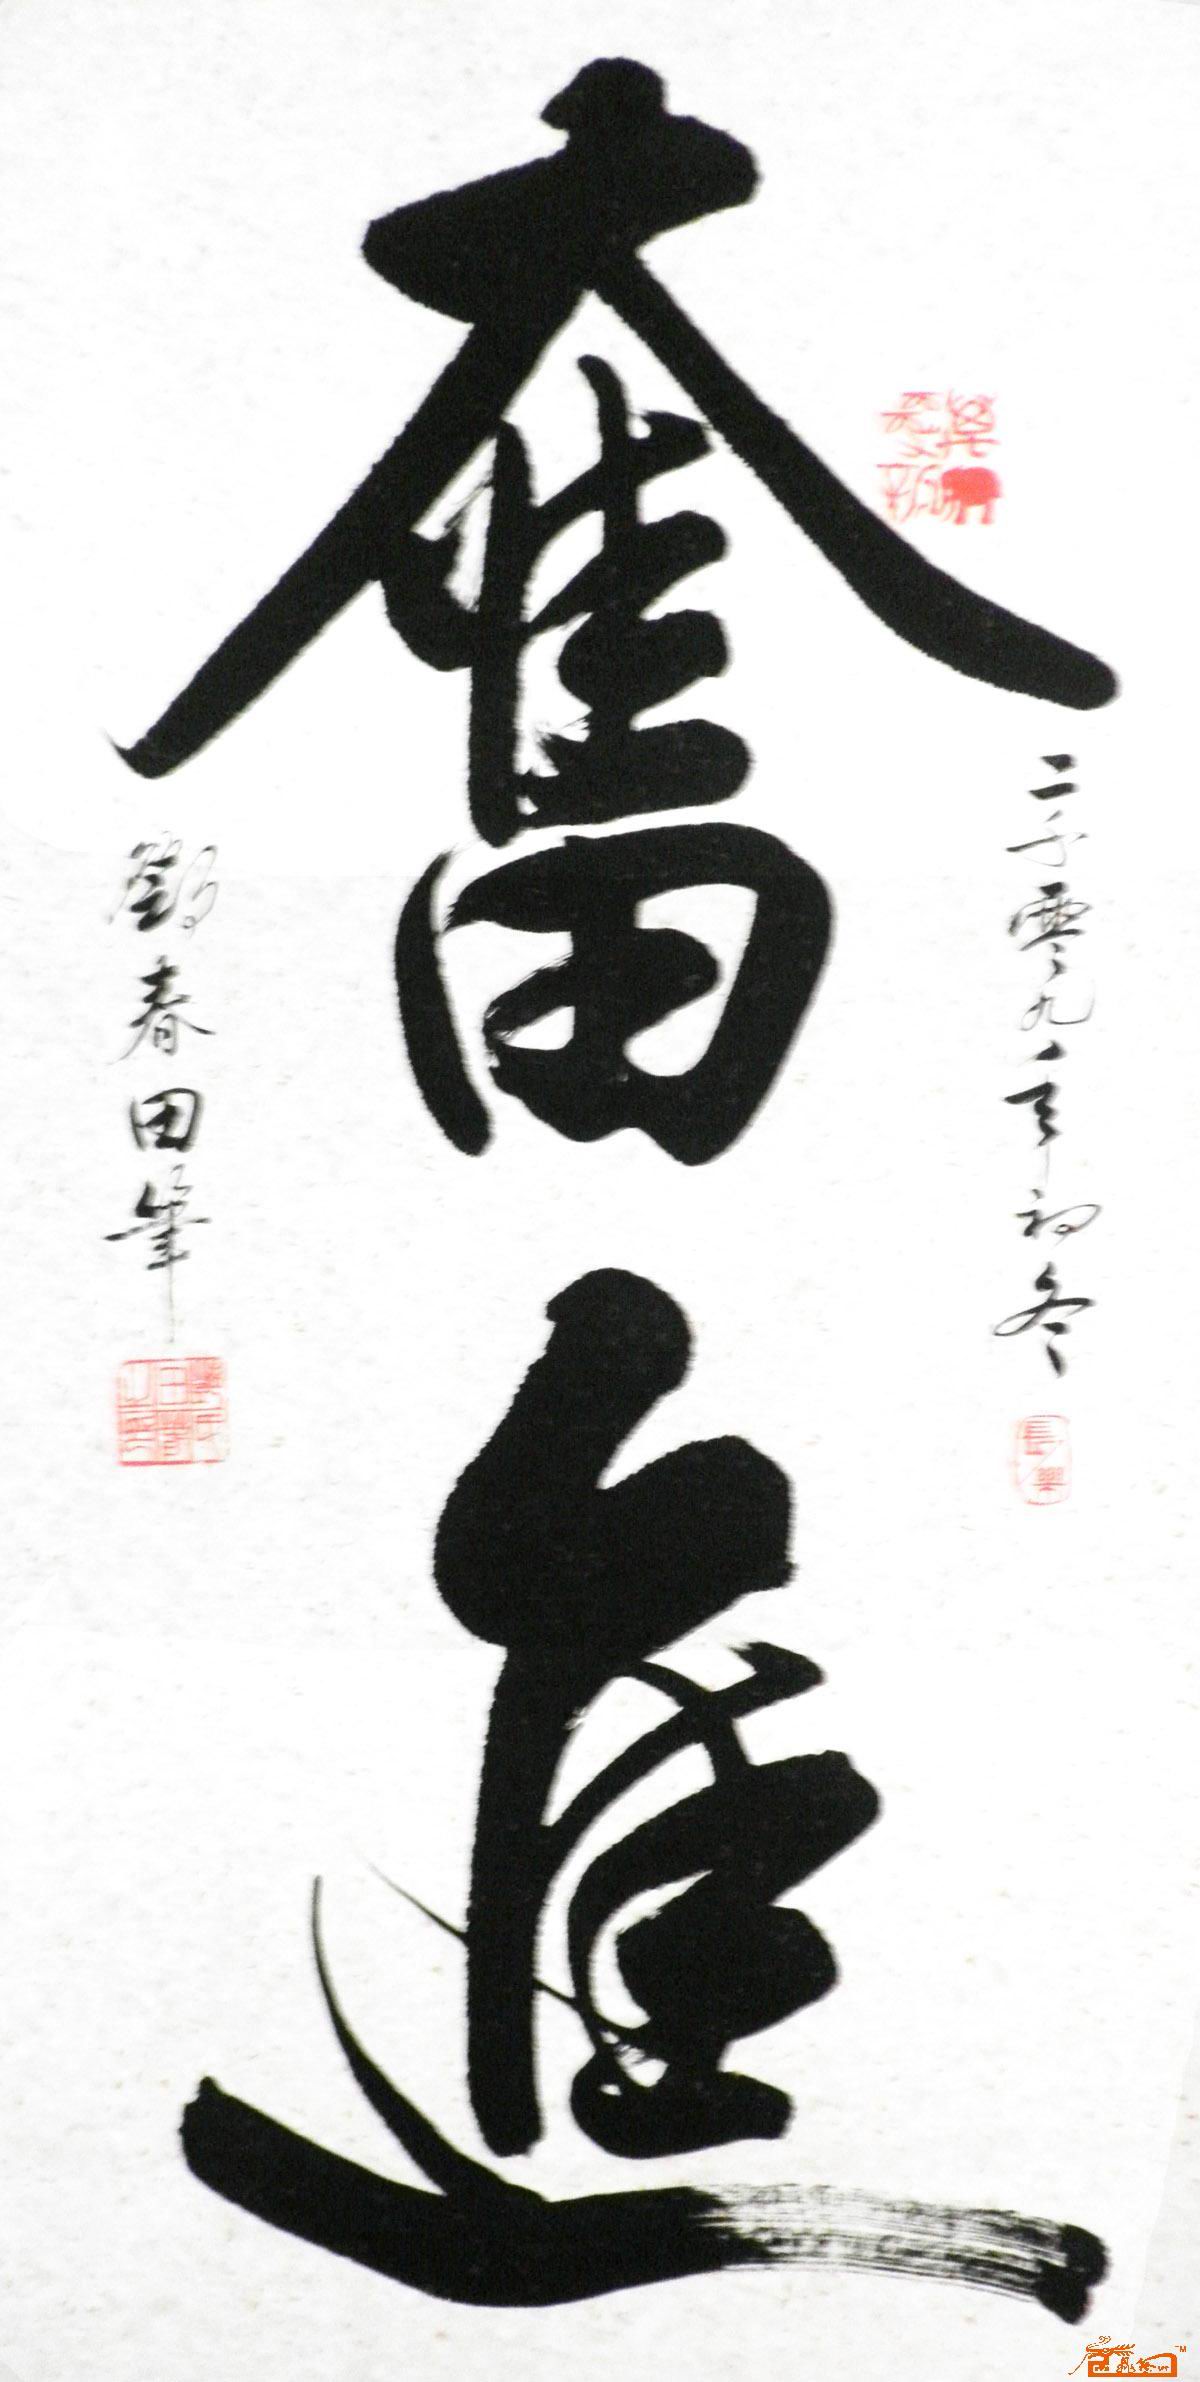 奮進
二千零九年初冬
劉春田筆
長樂